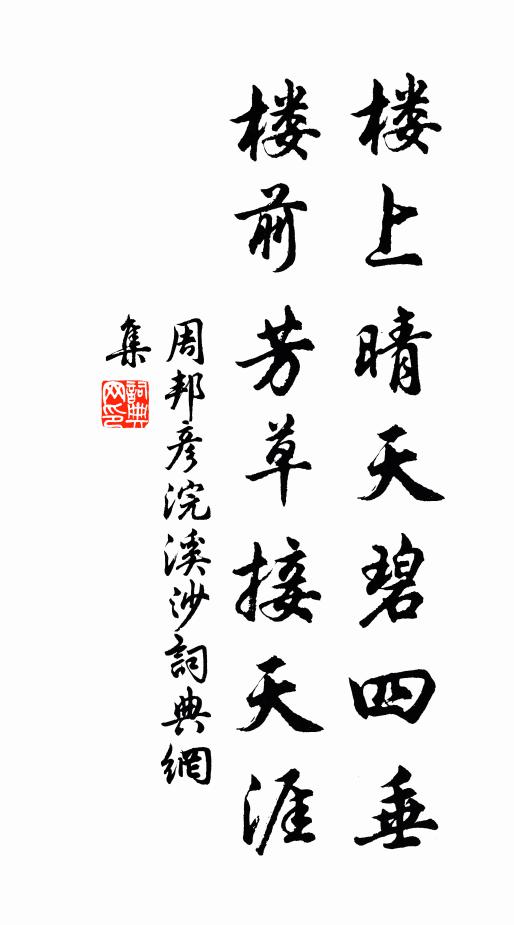 楼上晴天碧四垂
楼前芳草接天涯
周邦彦浣溪沙詞典網
集
詞典網印